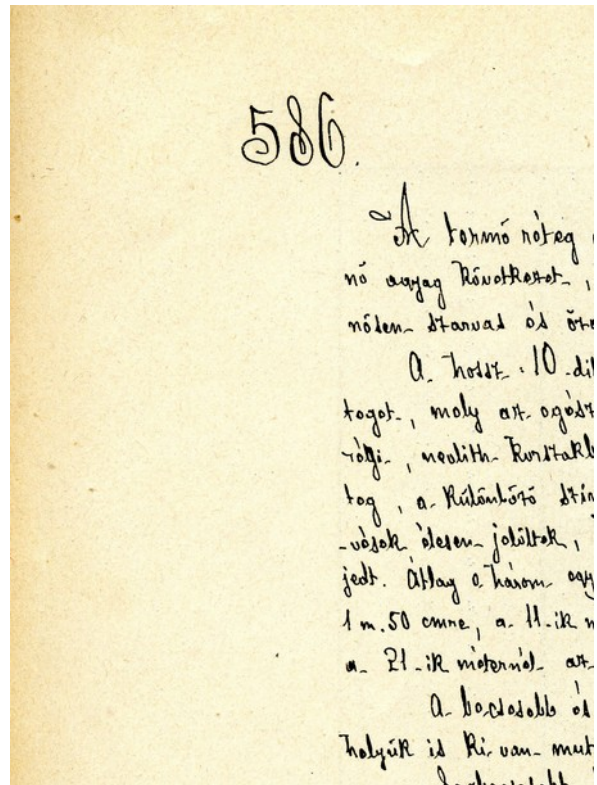 586.
A termő réteg
nő agyag következet,
nősen szarvas és őz
A hossz. 10
teget, mely az egész
régi, neolith korszak
teg, a különböző szín
vések élesen jelöltek,
jedt. Átlag e három egy
1 m. 50 cmre, a 11-ik m
a 21-ik méternél az
A becsesebb és
helyük is ki van mut